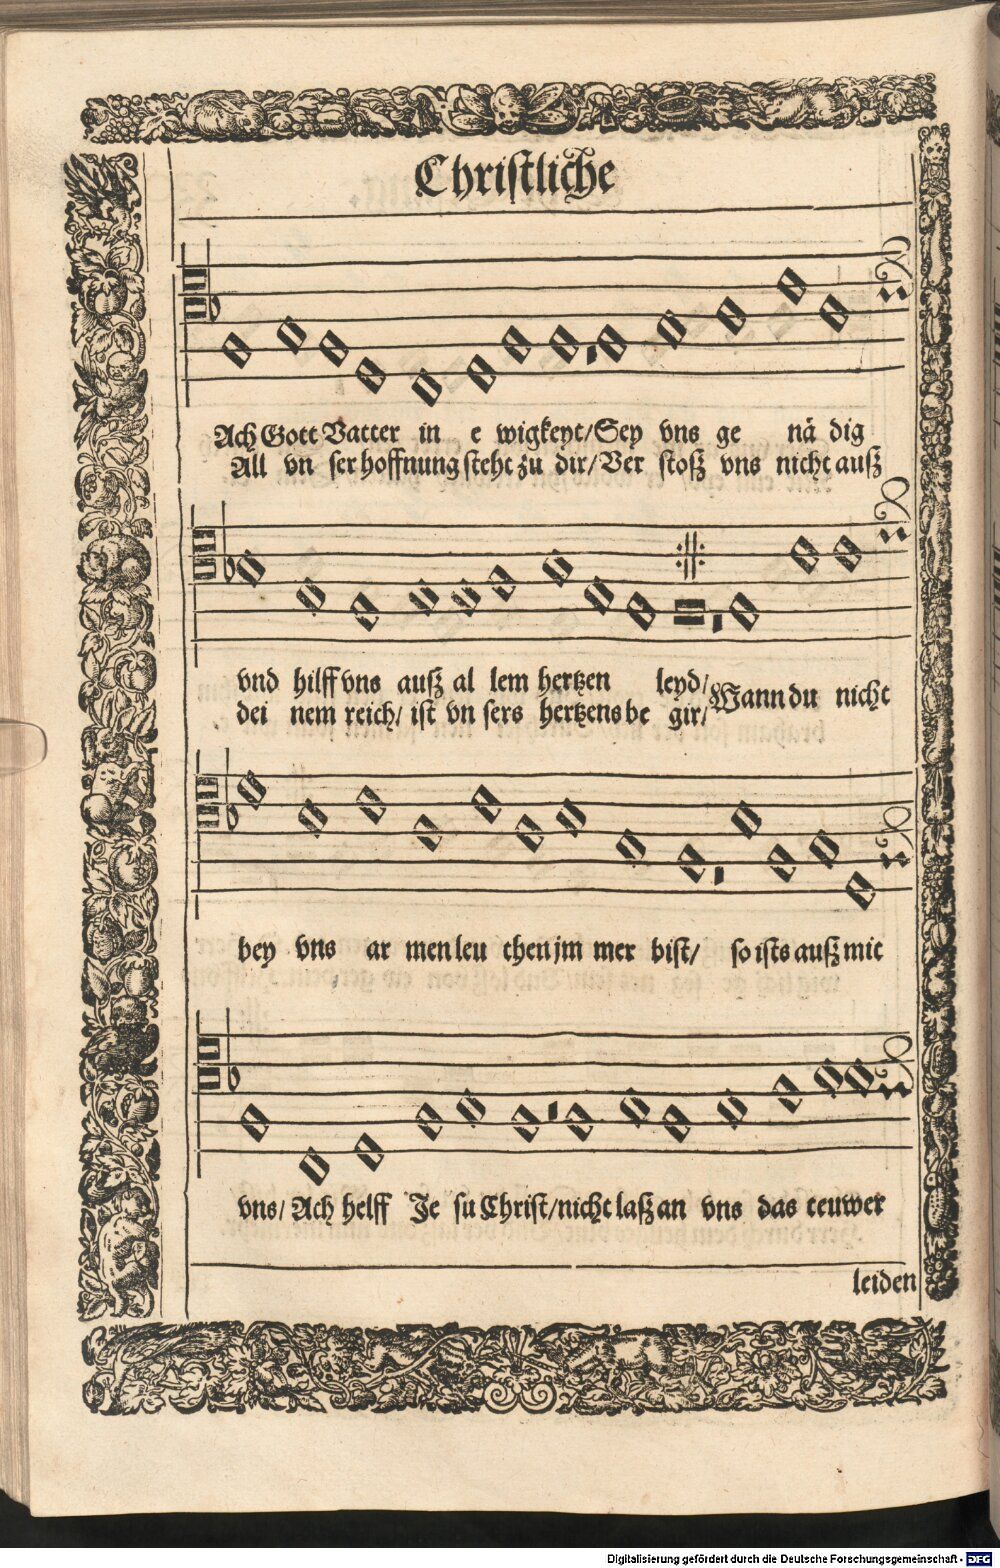 Christliche
Ach Gott Vatter in e wigkeyt/Sey vns ge nä dig
All vn ser hoffnung steht zu dir/Ver stosz vns nicht ausz
vnd hilff vns ausz al lem hertzen leyd/
dei nem reich/ ist vn sers hertzens be gir/ Wann du nicht
bey vns ar men leu then jm mer bist/ so ists ausz mit
vns/ Ach helff Je su Christ/nicht lasz an vns das teuwer
leiden
Digitalisierung gefördert durch die Deutsche Forschungsgemeinschaft - DFG